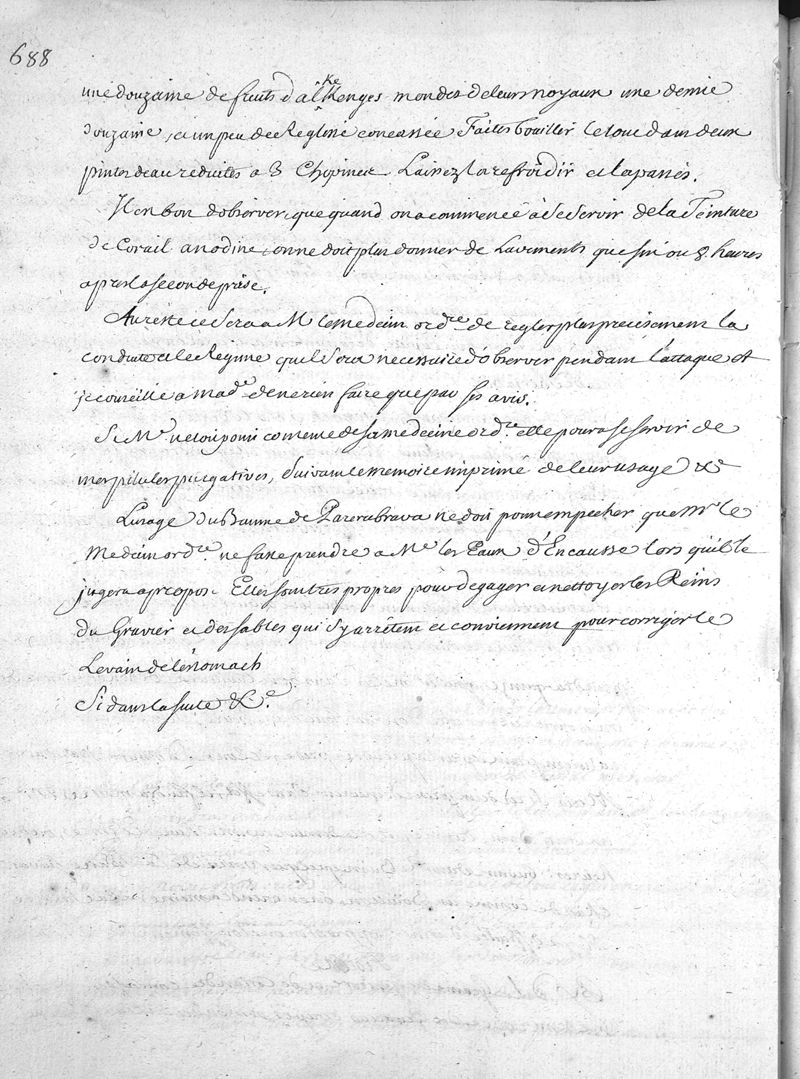 688
une douzaine de fruits d'alKeKenges mondés de leurs noyaux une demie
douzaine, et un peu de Reglisse concassée Faites bouillir le tout dans deux
pintes d'eau reduites a 3 Chopines Laissez la refroidir et la passés.
Il est bon d'observer que quand on a commencé à se servir de la Teinture
de Corail anodine, on ne doit plus donner de Lavements que six ou 8 heures
apres la seconde prise.
Au reste ce sera a M. le medecin ord.re de regler plus precisement la
conduite et le Regime qu'il sera necessaire d'observer pendant l'attaque et
je conseille a mad.e de ne rien faire que par ses avis.
Si M.e ne toit point contente de sa medecine ord.re elle poura se servir de
mes pilules purgatives, suivant le memoire imprimé de leur usage &c
Lusage du Baume de Pareirabrava ne doit point empecher que Mr le
Medecin ord.re ne fasse prendre a M.e les Eaux d'Encausse lors qu'il le
jugera apropos. Elles sont tres propres pour degager et nettoyer les Reins
du Gravier et des sables qui s'y arrêtent et conviennent pour corriger le
Levain de lestomach
Si dans la suite &c.